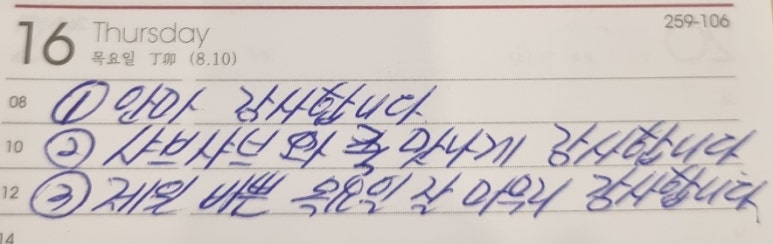 259-106
16 Thursday
목요일 丁卯 (8.10)
08 ① 엄마 감사합니다
10 ② 샤브샤브와 죽 맛나게 감사합니다
12 ③ 제일 바쁜 목요일 잘 마무리 감사합니다
14